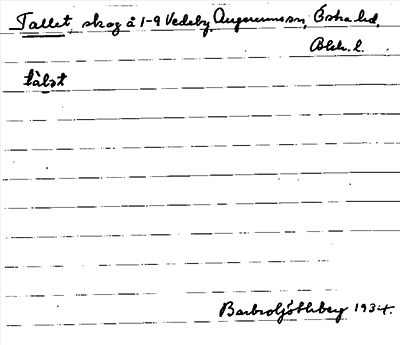 Tallet, skog å 1-9 Vedeby, Augerums sn, Östra hd,
Blek. l.
tàlət
Barbro Götlberg 1934.